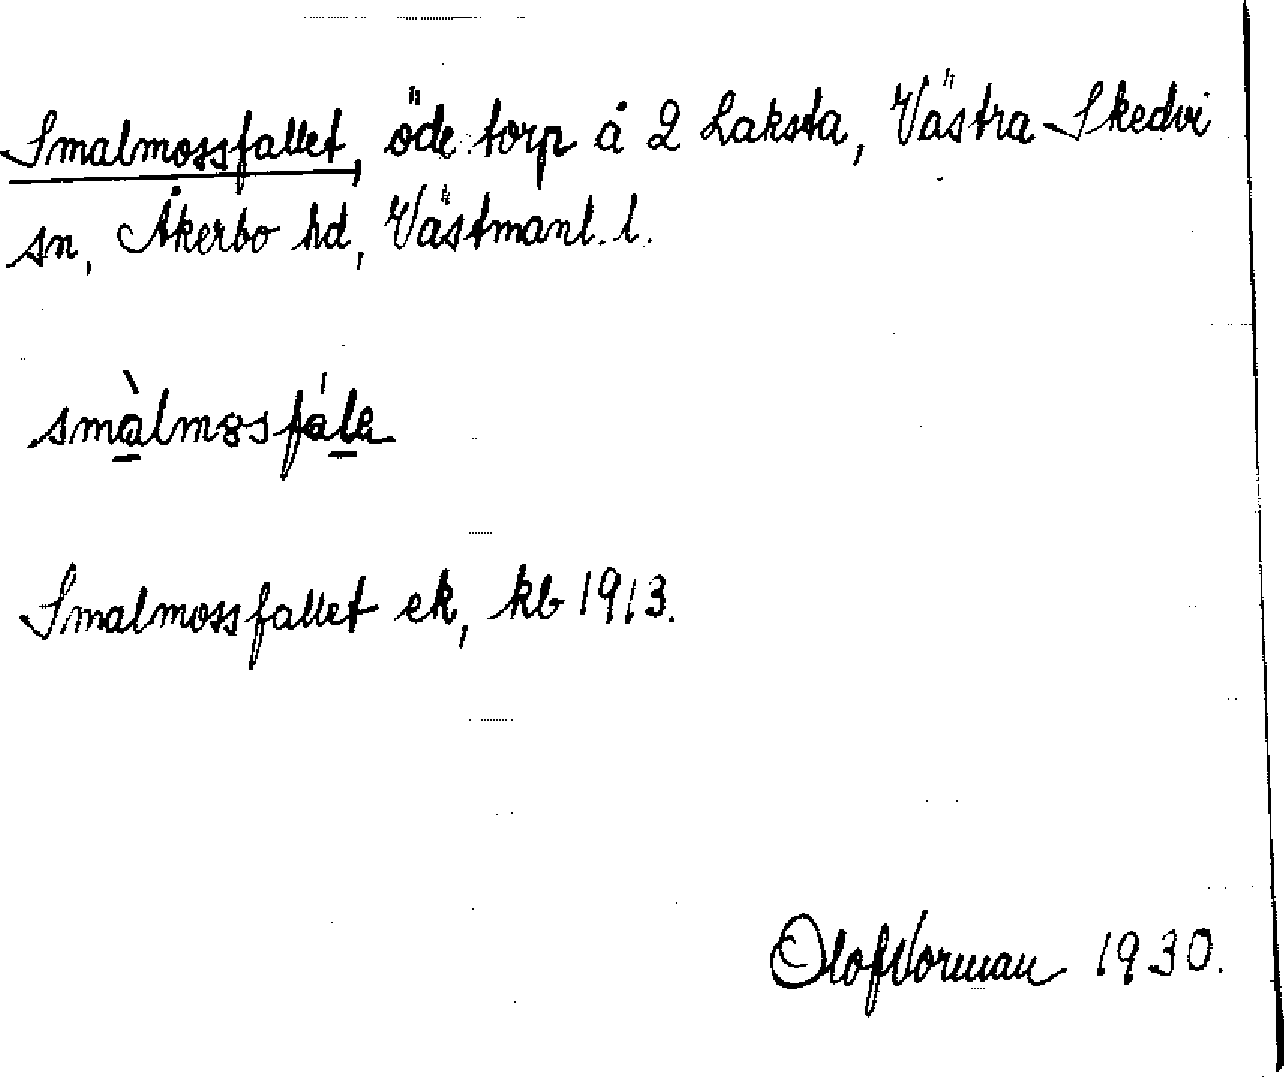 Smalmossfallet, öde torp å 2 Laksta, Västra Skedvi
sn, Åkerbo hd, Västmanl. l.
Smalmossfallet ek, kb 1913.
Olof Vorman 1930.